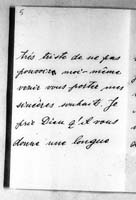 5
très triste de ne pas
pouvoir moi-même
venir vous porter mes
sincères souhaits. Je
prie Dieu q'il vous
donne une longue